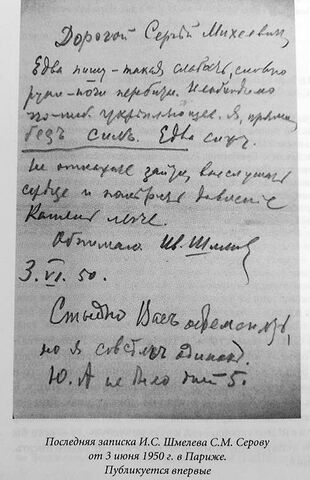 Дорогой Сергѣй Михеевич,
Едва пишу – такая слабость, словно
руки-ноги перебиты. Необходимо
что-ниб. укрѣпляющее. Я, прямо,
безъ силъ. Едва сижу.
Не откажите зайти, выслушать
сердце и
Кашель легче.
Обнимаю. Ив. Шмелев
3. VI. 50.
Стыдно Васъ
но я совсѣмъ одинокъ.
Ю. А не было дней 5.
Последняя записка И.С. Шмелева С.М. Серову
от 3 июня 1950 г. в Париже.
Публикуется впервые